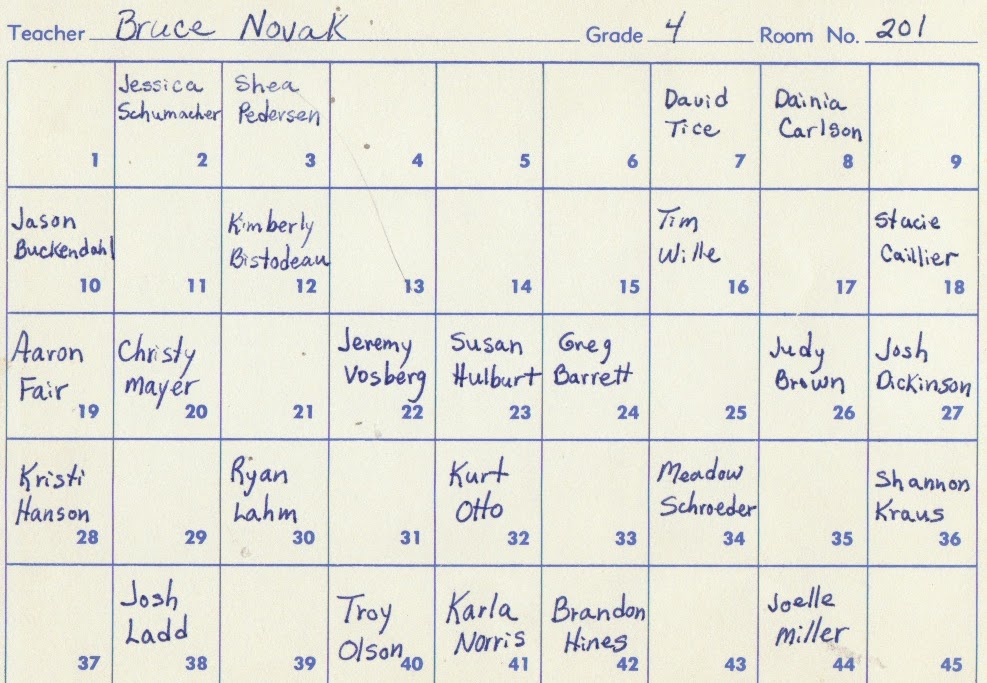 Teacher Bruce Novak Grade 4 Room No. 201
Jessica Schumacher Shea Pedersen David Tice Dainia Carlson
1 2 3 4 5 6 7 8 9
Jason Buckendahl Kimberly Bistodeau Tim Wille Stacie Caillier
10 11 12 13 14 15 16 17 18
Aaron Fair Christy Mayer Jeremy Vosberg Susan Hulburt Greg Barrett Judy Brown Josh Dickinson
19 20 21 22 23 24 25 26 27
Kristi Hanson Ryan Lahm Kurt Otto Meadow Schroeder Shannon Kraus
28 29 30 31 32 33 34 35 36
Josh Ladd Troy Olson Karla Norris Brandon Hines Joelle Miller
37 38 39 40 41 42 43 44 45